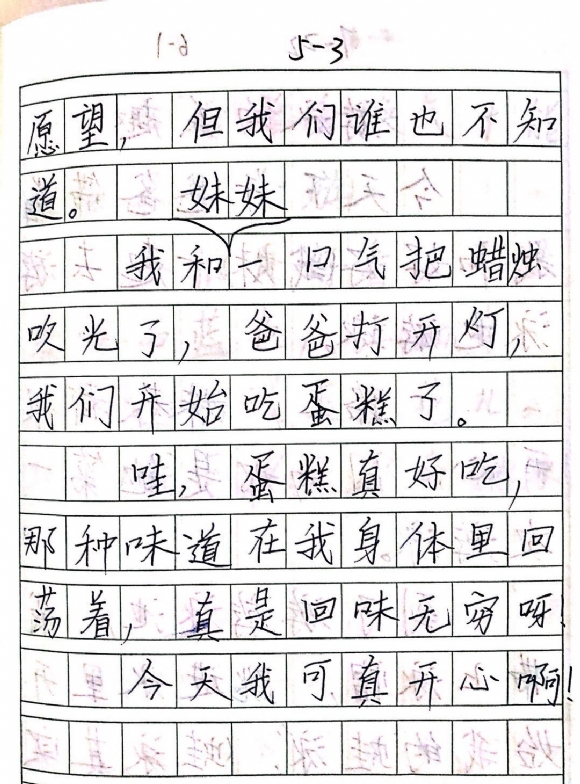 5-3
愿望，但我们谁也不知
道。
妹妹
我和一口气把蜡烛
吹光了，爸爸打开灯，
我们开始吃蛋糕了。
哇，蛋糕真好吃，
那种味道在我身体里回
荡着，真是回味无穷呀！
今天我可真开心啊！